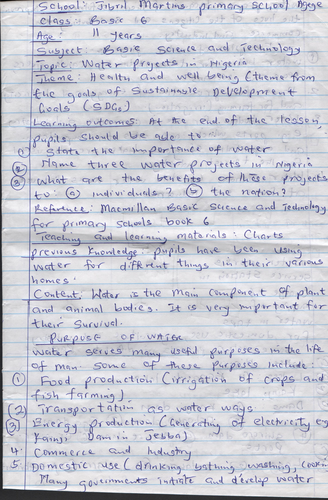 School: Jibril Martins primary school Agege
Class: Basic 6
Age: 11 years
Subject Basic Science and Technology
Topic: Water projects in Nigeria
Theme: Health and well being (theme from
the goals of Sustainable Development
Goals (SDGs)
Learning outcomes: At the end of the lesson,
pupils should be able to
① State the importance of water
② Name three water projects in Nigeria
③ What are the benefits of these projects
to (a) individuals? (b) the nation?
Reference: Macmillan Basic Science and Technology
for primary schools book 6
Teaching and learning materials: Charts
previous knowledge: pupils have been using
water for different things in their various
homes.
Content: Water is the main component of plant
and animal bodies. It is very important for
their survival.
PURPOSE OF WATER
Water serves many useful purposes in the life
of man. Some of these purposes include:
① Food production (irrigation of crops and
fish farming)
② Transportation as water ways
③ Energy production (generating of electricity eg
Kainji Dam in Jebba)
4 Commerce and Industry
5 Domestic use (drinking, bathing, washing,
Many governments initiate and develop water